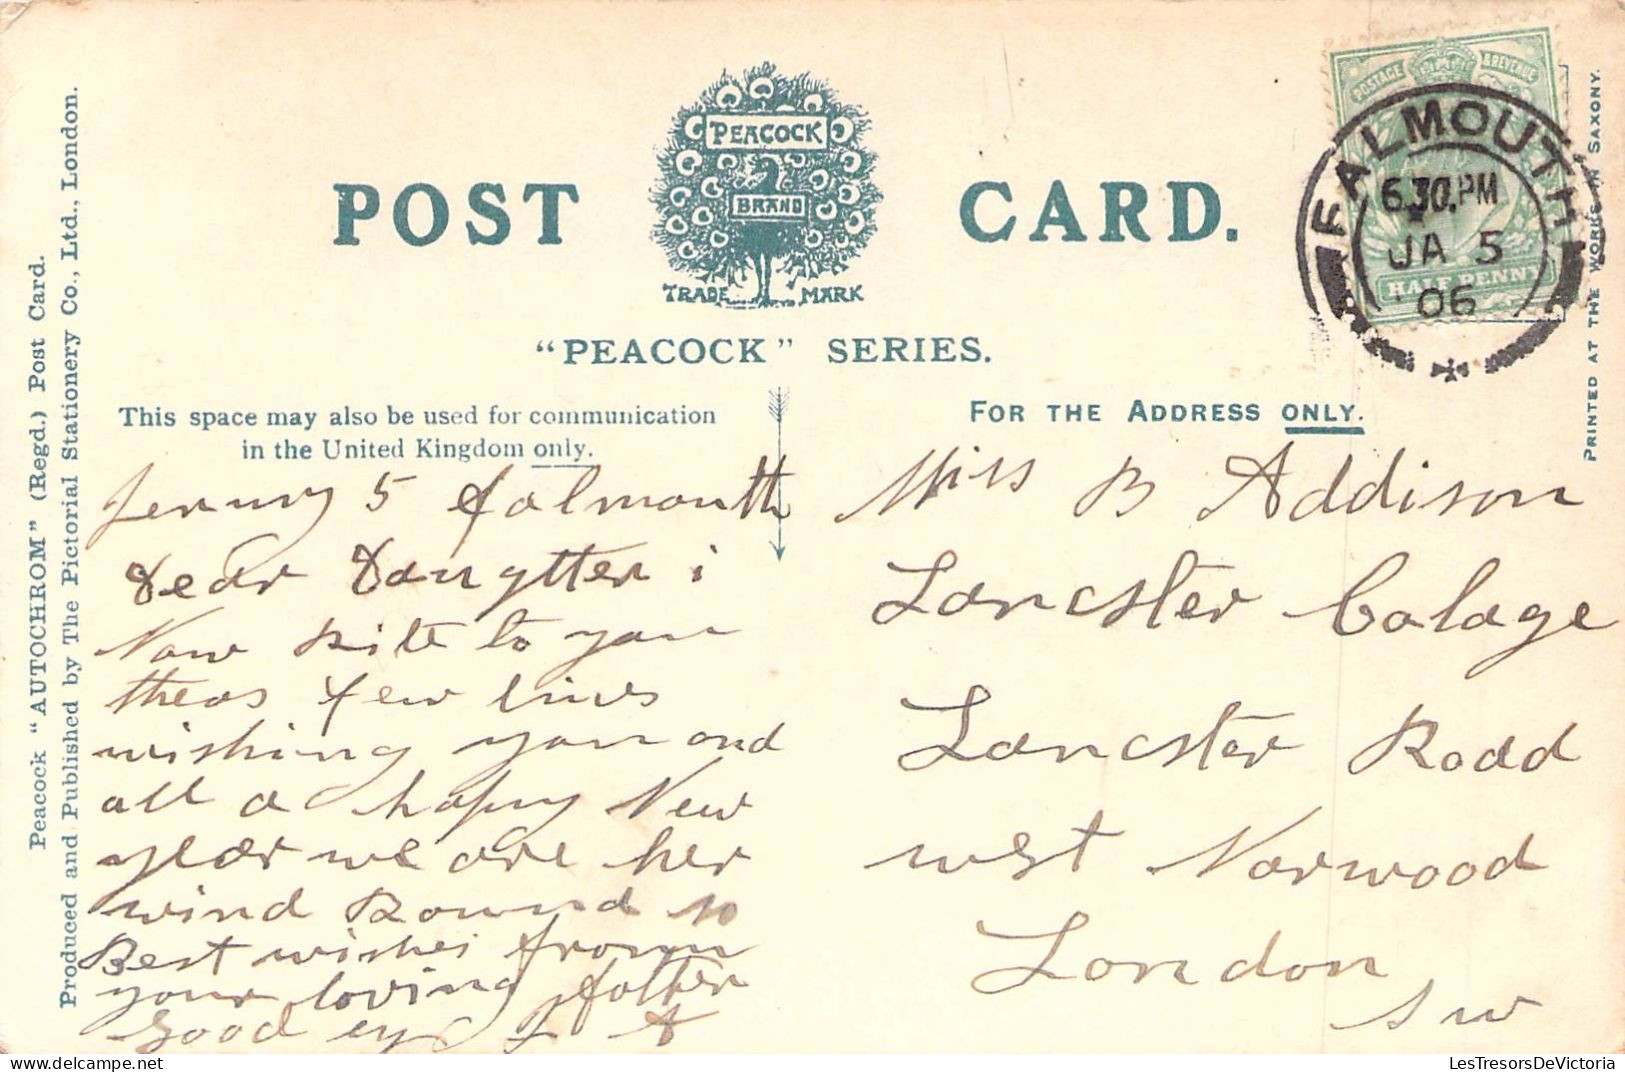 POST CARD.
PEACOCK
BRAND
TRADE MARK
"PEACOCK" SERIES.
This space may also be used for communication
in the United Kingdom only.
FOR THE ADDRESS ONLY.
POSTAGE & REVENUE
HALF PENNY
FALMOUTH
6.30.PM
JA 5
06
PRINTED AT THE WORKS IN SAXONY.
Peacock "AUTOCHROM" (Regd.) Post Card.
Produced and Published by The Pictorial Stationery Co., Ltd., London.
5 falmouth
Dear Daugtter i
Now Rite to you
theas few lines
wishing you and
all a hapy New
year we are her
wind Bound
Best wishes from
your loving father
Good
Miss B Addison
Lancster Colage
Lancster Rodd
west Norwood
London
S W
LesTresorsDeVictoria